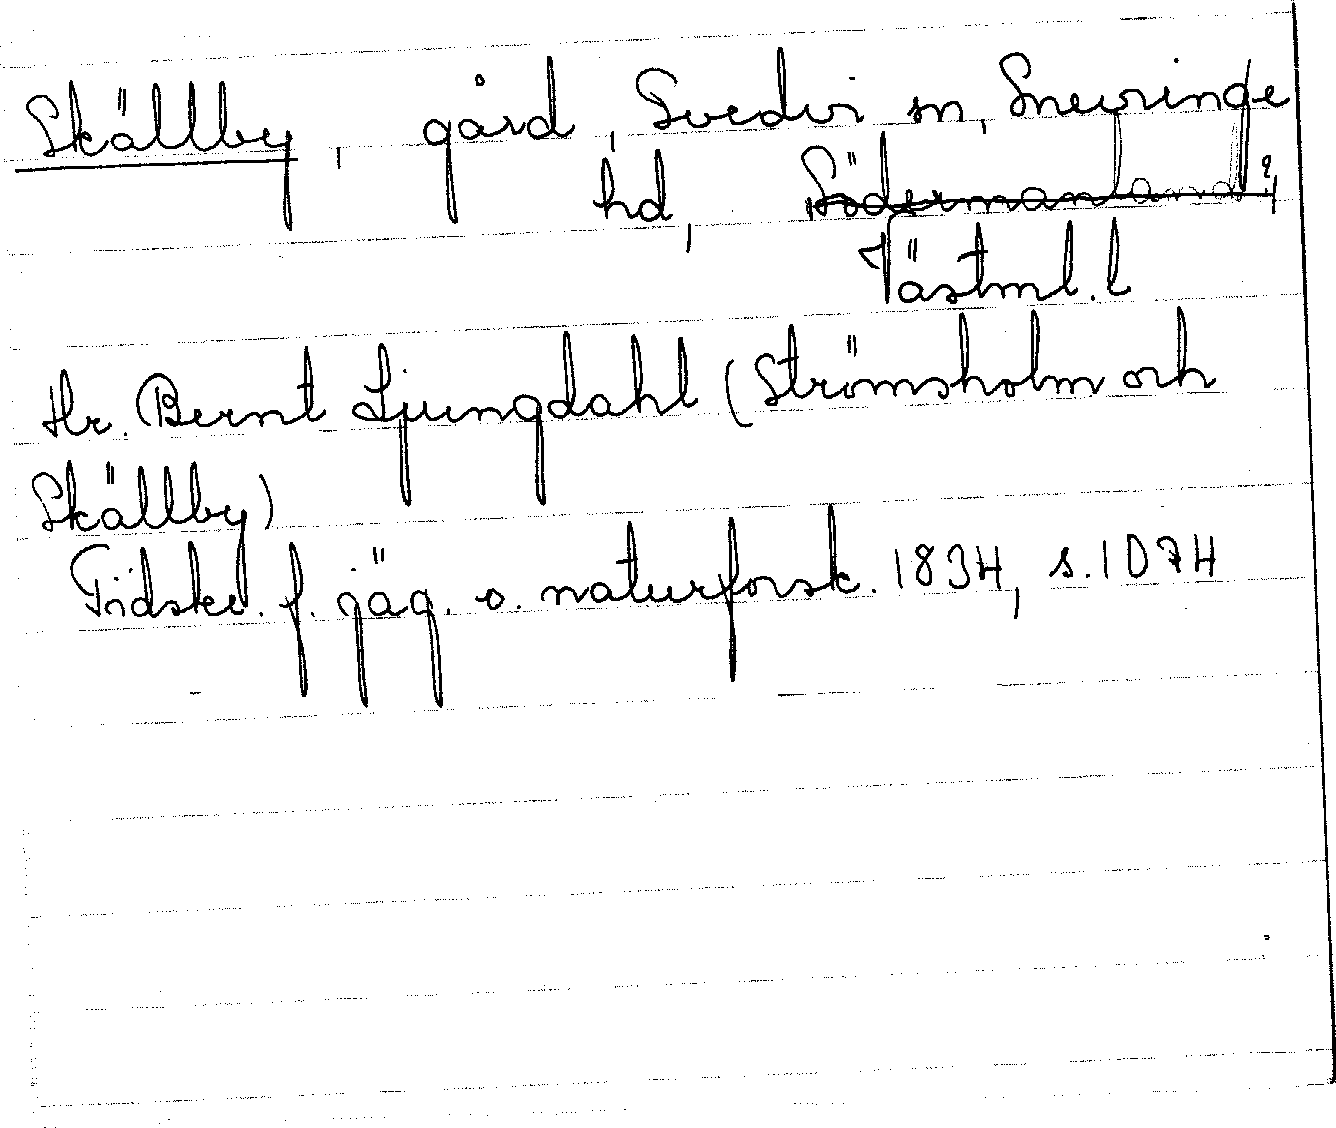 Skällby, gård, Svedvi sn, Snevringe
hd, Södermanland?,
Västml. l
Hr. Bernt Ljungdahl (Strömsholm och
Skällby)
Tidskr. f. jäg. o. naturforsk. 1834, s. 1074